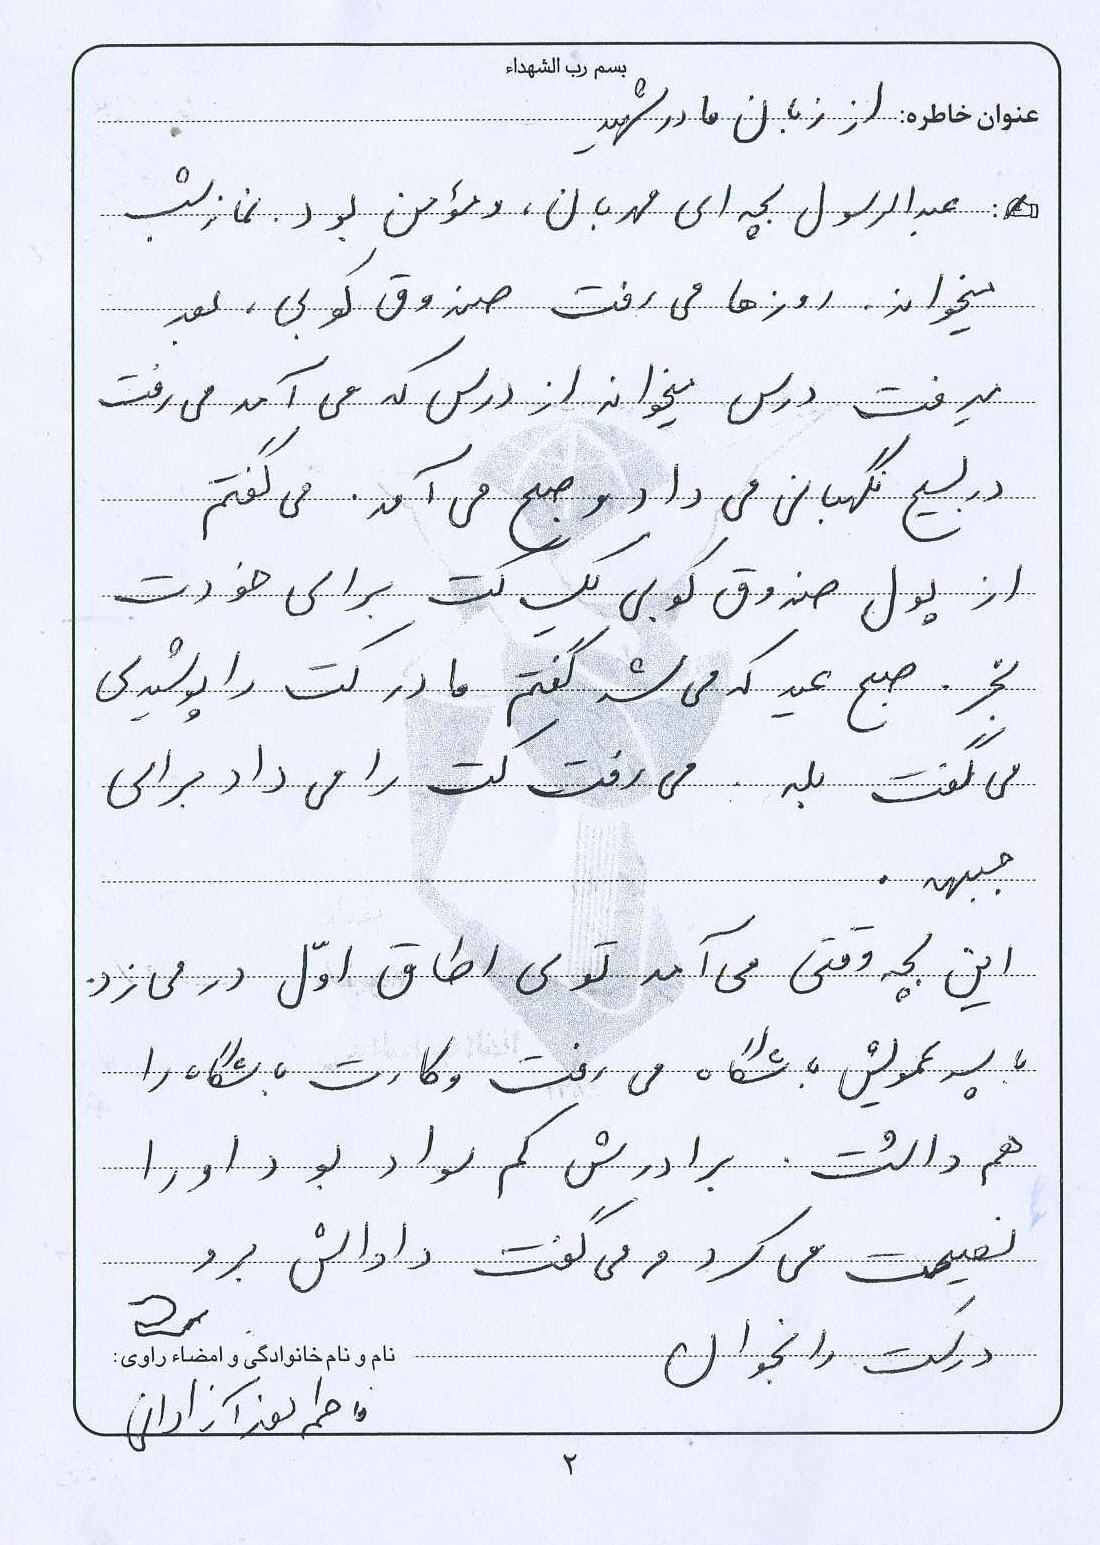 بسم رب الشهداء
عنوان خاطره: از زبان مادر شهید
عبدالرسول بچه ای مهربان، ومؤمن بود. نماز شب
میخواند. روزها می رفت صندوق کوبی، بعد
میرفت درس میخواند از درس که می آمد می رفت
در بسیج نگهبانی می داد و صبح می آمد. می گفتم
از پول صندوق کوبی یک کت برای خودت
بخر. صبح عید که می شد گفتم مادر کت را پوشیدی
می گفت بله. می رفت کت را می داد برای
جبهه.
این بچه وقتی می آمد توی اطاق اوّل در می زد.
با پسر عمویش باشگاه می رفت وکارت باشگاه را
هم داشت. برادرش کم سواد بود او را
نصیحت می کرد و می گفت داداش برو
درست را بخوان
نام و نام خانوادگی و امضاء راوی:
فاطمه
۲